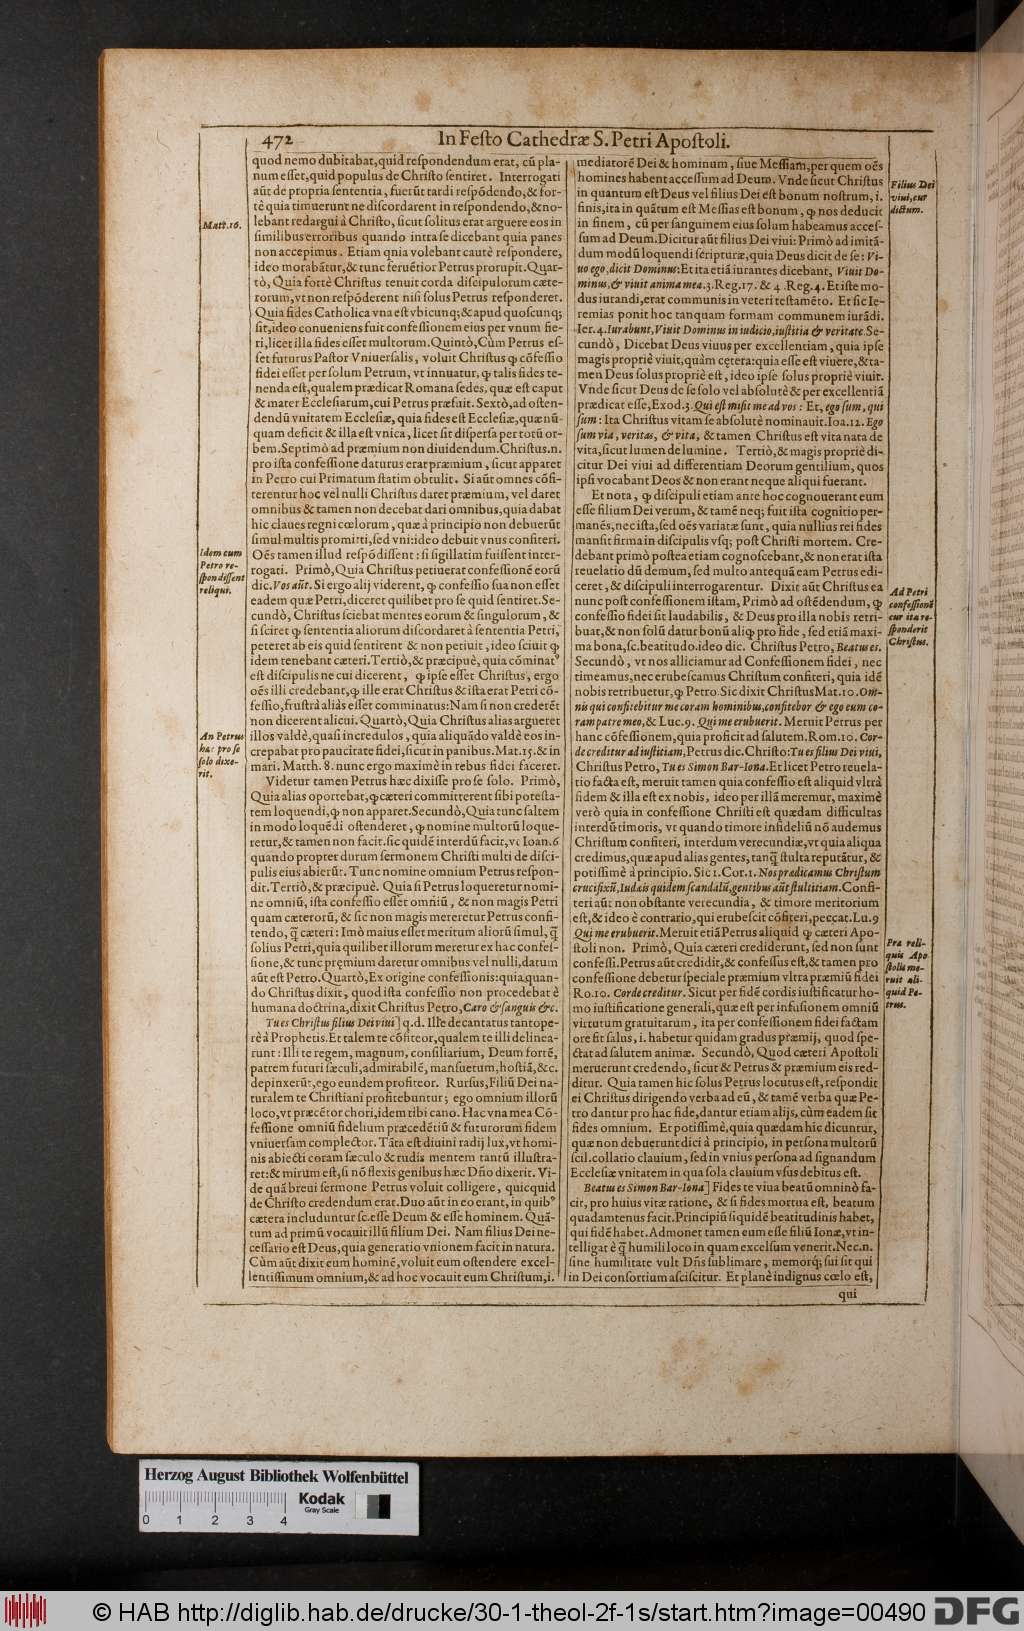 472
In Festo Cathedræ S. Petri Apostoli.
quod nemo dubitabat, quid respondendum erat, cū pla-
num esset, quid populus de Christo sentiret. Interrogati
aūt de propria sententia, fuerūt tardi respōdendo, & for-
tè quia timuerunt ne discordarent in respondendo, & no-
lebant redargui à Christo, sicut solitus erat arguere eos in
similibus erroribus quando intra se dicebant quia panes
non accepimus. Etiam qnia volebant cautè respondere,
ideo morabātur, & tunc feruētior Petrus prorupit. Quar-
tò, Quia fortè Christus tenuit corda discipulorum cæte-
rorum, vt non respōderent nisi solus Petrus responderet.
Quia fides Catholica vna est vbicunq; & apud quoscunq;
sit, ideo conueniens fuit confessionem eius per vnum fie-
ri, licet illa fides esset multorum. Quintò, Cùm Petrus es-
set futurus Pastor Vniuersalis, voluit Christus ꝙ cōfessio
fidei esset per solum Petrum, vt innuatur, ꝙ talis fides te-
nenda est, qualem prædicat Romana sedes, quæ est caput
& mater Ecclesiarum, cui Petrus præfuit. Sextò, ad osten-
dendū vnitatem Ecclesiæ, quia fides est Ecclesiæ, quæ nū-
quam deficit & illa est vnica, licet sit dispersa per totū or-
bem. Septimò ad præmium non diuidendum. Christus.n.
pro ista confessione daturus erat præmium, sicut apparet
in Petro cui Primatum statim obtulit. Si aūt omnes cōfi-
terentur hoc vel nulli Christus daret præmium, vel daret
omnibus & tamen non decebat dari omnibus, quia dabat
hic claues regni cœlorum, quæ à principio non debuerūt
simul multis promitti, sed vni: ideo debuit vnus confiteri.
Oēs tamen illud respōdissent: si sigillatim fuissent inter-
rogati. Primò, Quia Christus petiuerat confessionē eorū
dic. Vos aūt. Si ergo alij viderent, ꝙ confessio sua non esset
eadem quæ Petri, diceret quilibet pro se quid sentiret. Se-
cundò, Christus sciebat mentes eorum & singulorum, &
si sciret ꝙ sententia aliorum discordaret à sententia Petri,
peteret ab eis quid sentirent & non petiuit, ideo sciuit ꝙ
idem tenebant cæteri. Tertiò, & præcipuè, quia cōminatꝰ
est discipulis ne cui dicerent, ꝙ ipse esset Christus, ergo
oēs illi credebant, ꝙ ille erat Christus & ista erat Petri cō-
fessio, frustrà aliàs esset comminatus: Nam si non crederēt
non dicerent alicui. Quartò, Quia Christus alias argueret
illos valdè, quasi incredulos, quia aliquādo valdè eos in-
crepabat pro paucitate fidei, sicut in panibus. Mat. 15. & in
mari. Matth. 8. nunc ergo maximè in rebus fidei faceret.
Videtur tamen Petrus hæc dixisse pro se solo. Primò,
Quia alias oportebat, ꝙ cæteri committerent sibi potesta-
tem loquendi, ꝙ non apparet. Secundò, Quia tunc saltem
in modo loquēdi ostenderet, ꝙ nomine multorū loque-
retur, & tamen non facit. sic quidē interdū facit, vt Ioan. 6
quando propter durum sermonem Christi multi de disci-
pulis eius abierūt. Tunc nomine omnium Petrus respon-
dit. Tertiò, & præcipuè. Quia si Petrus loqueretur nomi-
ne omniū, ista confessio esset omniū, & non magis Petri
quam cæterorū, & sic non magis mereretur Petrus confi-
tendo, q̄ cæteri: Imò maius esset meritum aliorū simul, q̄
solius Petri, quia quilibet illorum meretur ex hac confes-
sione, & tunc pręmium daretur omnibus vel nulli, datum
aūt est Petro. Quartò, Ex origine confessionis: quia quan-
do Christus dixit, quod ista confessio non procedebat è
humana doctrina, dixit Christus Petro, Caro & sanguis &c.
Tu es Christus filius Dei viui] q.d. Ille decantatus tantope-
rè à Prophetis. Et talem te cōfiteor, qualem te illi delinea-
runt: Illi te regem, magnum, consiliarium, Deum fortē,
patrem futuri sæculi, admirabilē, mansuetum, hostiā, &c.
depinxerūt, ego eundem profiteor. Rursus, Filiū Dei na-
turalem te Christiani profitebuntur; ego omnium illorū
loco, vt præcētor chori, idem tibi cano. Hac vna mea Cō-
fessione omniū fidelium præcedētiū & futurorum fidem
vniuersam complector. Tāta est diuini radij lux, vt homi-
nis abiecti coram sæculo & rudis mentem tantū illustra-
ret: & mirum est, si nō flexis genibus hæc Dño dixerit. Vi-
de quā breui sermone Petrus voluit colligere, quicquid
de Christo credendum erat. Duo aūt in eo erant, in quibꝰ
cætera includuntur sc. esse Deum & esse hominem. Quā-
tum ad primū vocauit illū filium Dei. Nam filius Dei ne-
cessario est Deus, quia generatio vnionem facit in natura.
Cùm aūt dixit eum hominē, voluit eum ostendere excel-
lentissimum omnium, & ad hoc vocauit eum Christum, i.
Matt. 16.
Idem cum
Petro re-
spondissent
reliqui.
An Petrus
hæc pro se
solo dixe-
rit.
mediatorē Dei & hominum, siue Messiam, per quem oēs
homines habent accessum ad Deum. Vnde sicut Christus
in quantum est Deus vel filius Dei est bonum nostrum, i.
finis, ita in quātum est Messias est bonum, ꝙ nos deducit
in finem, cū per sanguinem eius solum habeamus acces-
sum ad Deum. Dicitur aūt filius Dei viui: Primò ad imitā-
dum modū loquendi scripturæ, quia Deus dicit de se: Vi-
uo ego, dicit Dominus: Et ita etiā iurantes dicebant, Viuit Do-
minus, & viuit anima mea. 3. Reg. 17. & 4. Reg. 4. Et iste mo-
dus iurandi, erat communis in veteri testamēto. Et sic Ie-
remias ponit hoc tanquam formam communem iurādi.
Ier. 4. Iurabunt, Viuit Dominus in iudicio, iustitia & veritate. Se-
cundò, Dicebat Deus viuus per excellentiam, quia ipse
magis propriè viuit, quàm cętera: quia esse est viuere, & ta-
men Deus solus propriè est, ideo ipse solus propriè viuit.
Vnde sicut Deus de se solo vel absolutè & per excellentiā
prædicat esse, Exod. 3. Qui est misit me ad vos: Et, ego sum, qui
sum: Ita Christus vitam se absolutè nominauit. Ioa. 12. Ego
sum via, veritas, & vita, & tamen Christus est vita nata de
vita, sicut lumen de lumine. Tertiò, & magis propriè di-
citur Dei viui ad differentiam Deorum gentilium, quos
ipsi vocabant Deos & non erant neque aliqui fuerant.
Et nota, ꝙ discipuli etiam ante hoc cognouerant eum
esse filium Dei verum, & tamē neq; fuit ista cognitio per-
manēs, nec ista, sed oēs variatæ sunt, quia nullius rei fides
mansit firma in discipulis vsq; post Christi mortem. Cre-
debant primò postea etiam cognoscebant, & non erat ista
reuelatio dū demum, sed multo antequā eam Petrus edi-
ceret, & discipuli interrogarentur. Dixit aūt Christus ea
nunc post confessionem istam, Primò ad ostēdendum, ꝙ
confessio fidei sit laudabilis, & Deus pro illa nobis retri-
buat, & non solū datur bonū aliꝙ pro fide, sed etiā maxi-
ma bona, sc. beatitudo. ideo dic. Christus Petro, Beatus es.
Secundò, vt nos alliciamur ad Confessionem fidei, nec
timeamus, nec erubescamus Christum confiteri, quia idē
nobis retribuetur, ꝙ Petro. Sic dixit Christus Mat. 10. Om-
nis qui confitebitur me coram hominibus, confitebor & ego eum co-
ram patre meo, & Luc. 9. Qui me erubuerit. Meruit Petrus per
hanc cōfessionem, quia proficit ad salutem. Rom. 10. Cor-
de creditur ad iustitiam, Petrus dic. Christo: Tu es filius Dei viui,
Christus Petro, Tu es Simon Bar-Iona. Et licet Petro reuela-
tio facta est, meruit tamen quia confessio est aliquid vltrà
fidem & illa est ex nobis, ideo per illā meremur, maximè
verò quia in confessione Christi est quædam difficultas
interdū timoris, vt quando timore infideliū nō audemus
Christum confiteri, interdum verecundiæ, vt quia aliqua
credimus, quæ apud alias gentes, tanq̄ stulta reputātur, &
potissimè à principio. Sic 1. Cor. 1. Nos prædicamus Christum
crucifixū, Iudæis quidem scandalū, gentibus aūt stultitiam. Confi-
teri aūt non obstante verecundia, & timore meritorium
est, & ideo è contrario, qui erubescit cōfiteri, peccat. Lu. 9
Qui me erubuerit. Meruit etiā Petrus aliquid ꝙ cæteri Apo-
stoli non. Primò, Quia cæteri crediderunt, sed non sunt
confessi. Petrus aūt credidit, & confessus est, & tamen pro
confessione debetur speciale præmium vltra præmiū fidei
Ro. 10. Corde creditur. Sicut per fidē cordis iustificatur ho-
mo iustificatione generali, quæ est per infusionem omniū
virtutum gratuitarum, ita per confessionem fidei factam
ore fit salus, i. habetur quidam gradus præmij, quod spe-
ctat ad salutem animæ. Secundò, Quod cæteri Apostoli
meruerunt credendo, sicut & Petrus & præmium eis red-
ditur. Quia tamen hic solus Petrus locutus est, respondit
ei Christus dirigendo verba ad eū, & tamē verba quæ Pe-
tro dantur pro hac fide, dantur etiam alijs, cùm eadem sit
fides omnium. Et potissimè, quia quædam hic dicuntur,
quæ non debuerunt dici à principio, in persona multorū
scil. collatio clauium, sed in vnius persona ad signandum
Ecclesiæ vnitatem in qua sola clauium vsus debitus est.
Beatus es Simon Bar-Iona] Fides te viua beatū omninò fa-
cit, pro huius vitæ ratione, & si fides mortua est, beatum
quadamtenus facit. Principiū siquidē beatitudinis habet,
qui fidē habet. Admonet tamen eum esse filiū Ionæ, vt in-
telligat è q̄ humili loco in quam excelsum venerit. Nec.n.
sine humilitate vult Dñs sublimare, memorq; sui sit qui
in Dei consortium asciscitur. Et planè indignus cœlo est,
qui
Filius Dei
viui, cur
dictum.
Ad Petri
confessionē
cur ita re-
sponderit
Christus.
Præ reli-
quis Apo
stolis me-
ruit ali-
quid Pe-
trus.
Herzog August Bibliothek Wolfenbüttel
Kodak
Gray Scale
0 1 2 3 4
© HAB http://diglib.hab.de/drucke/30-1-theol-2f-1s/start.htm?image=00490
DFG